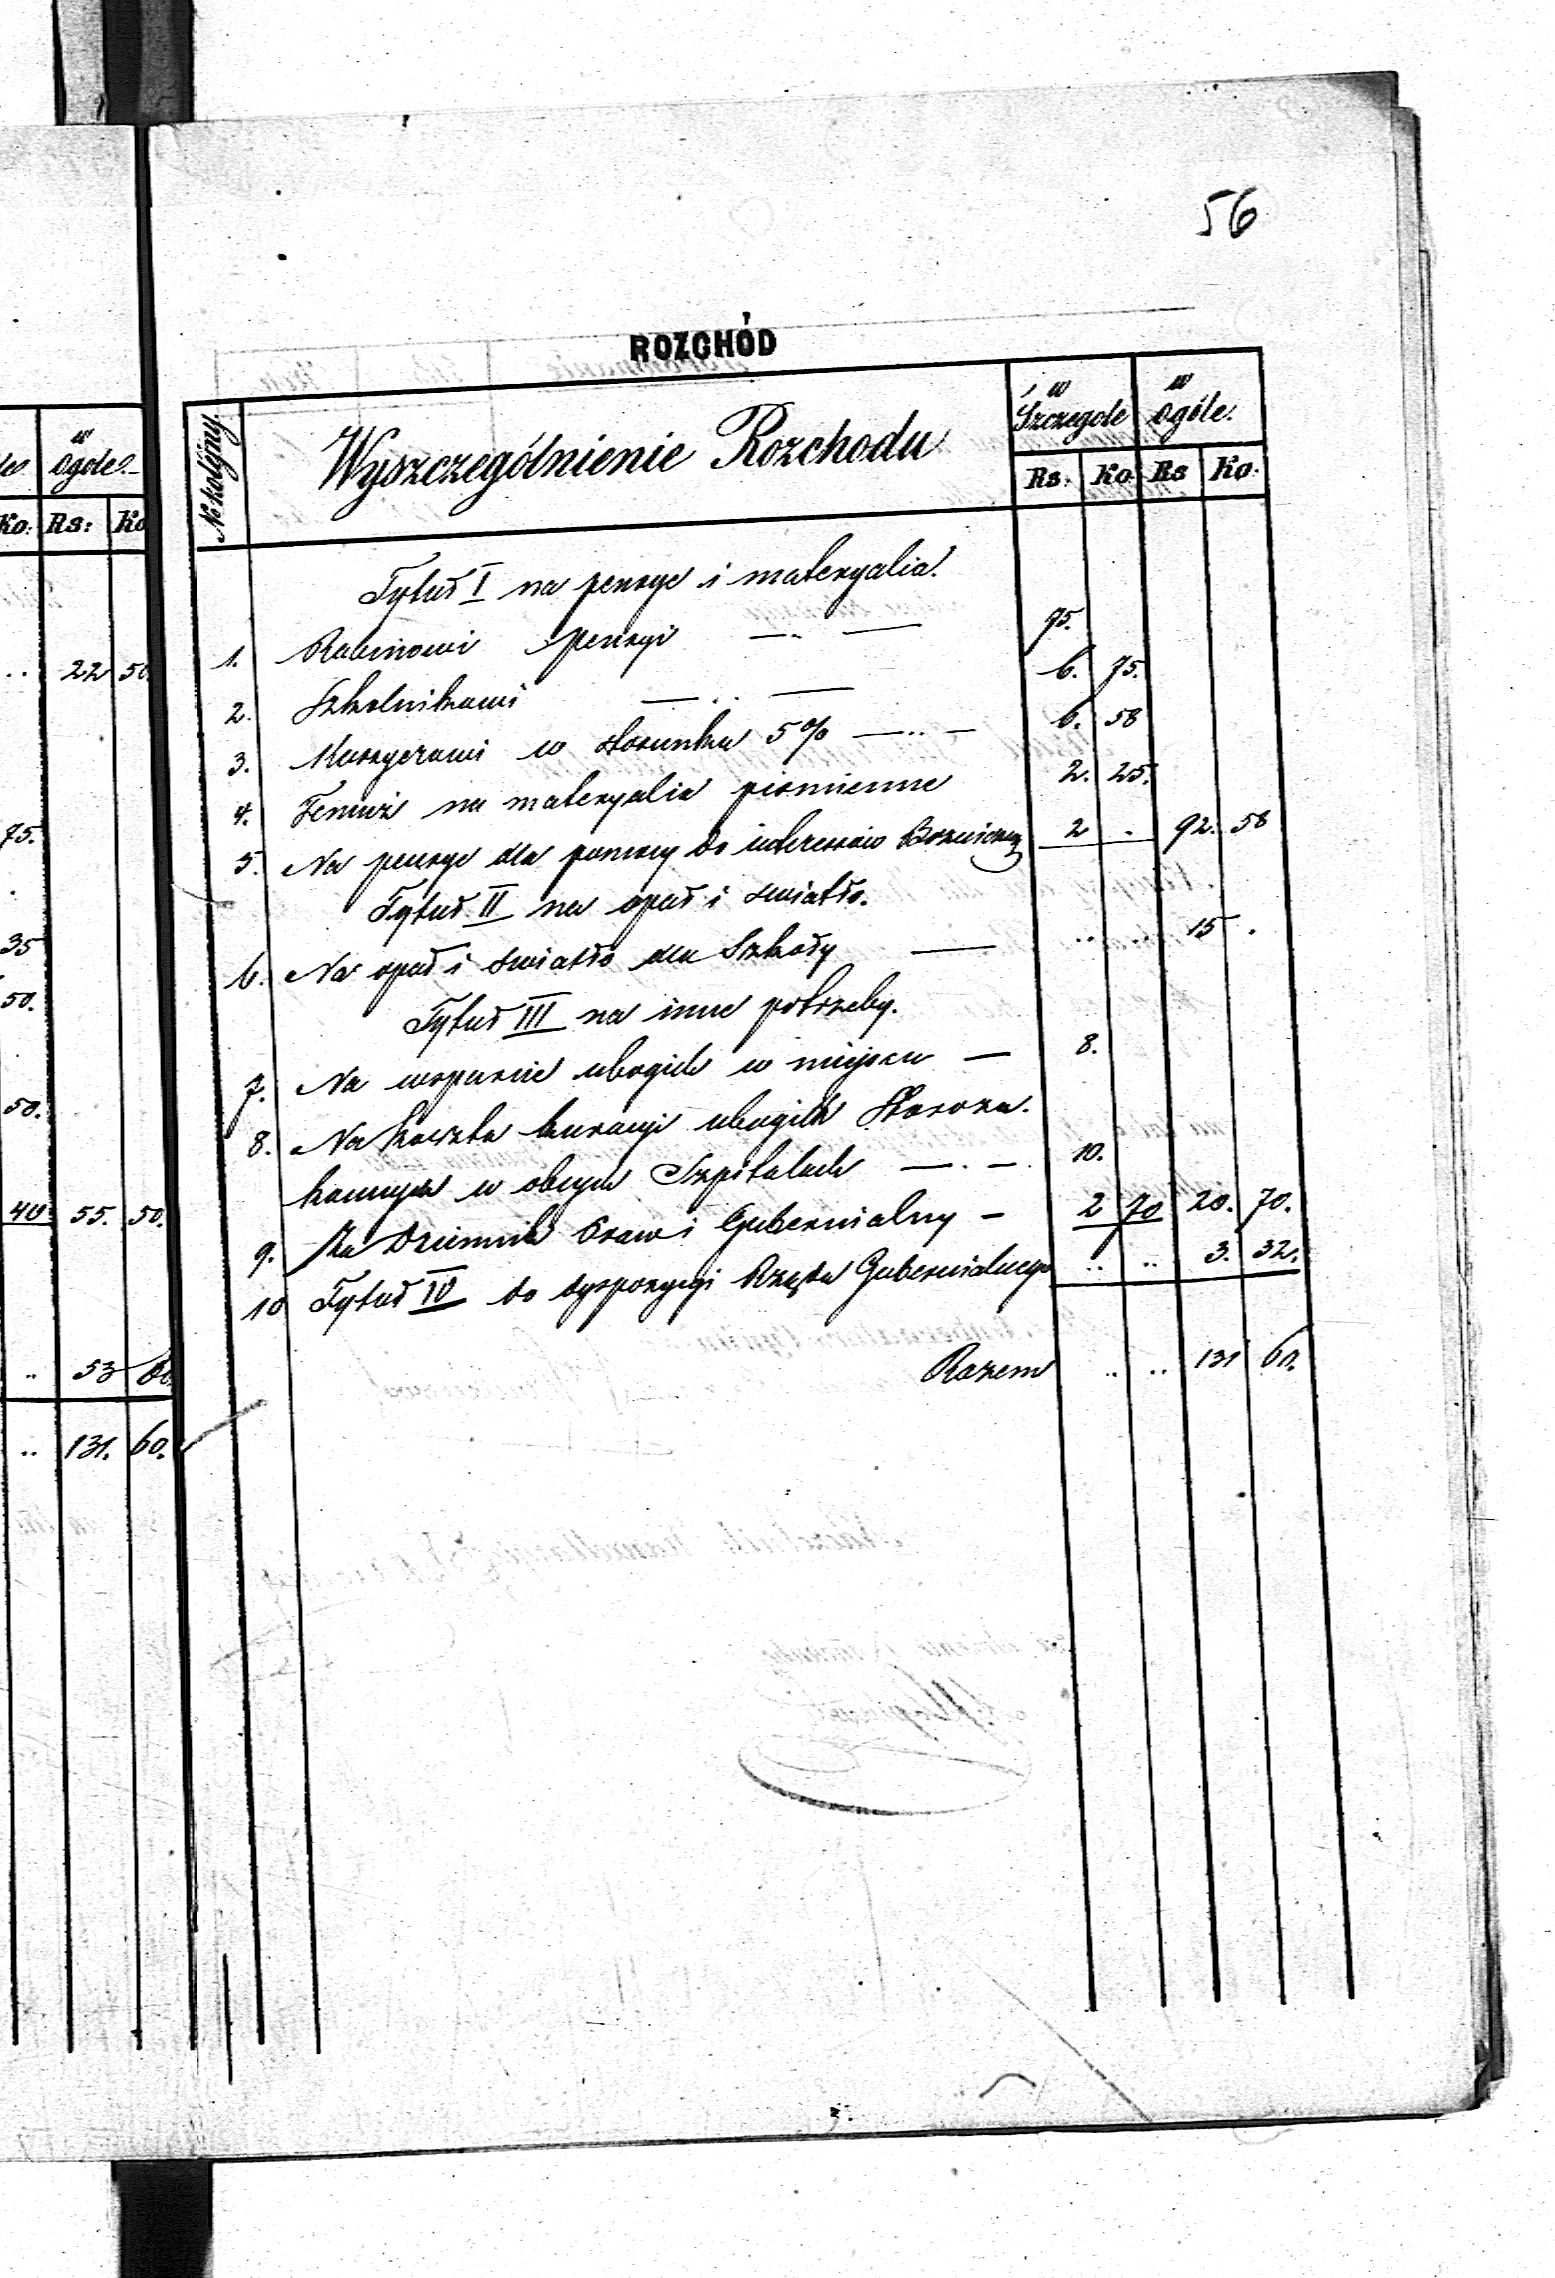 56
ROZCHÓD
No kolejny
Wyszczególnienie Rozchodu
w Szczegole
w ogóle.
Rs. Ko Rs Ko.
Tytuł I na pensye i materyalia.
1. Rabinowi pensyi — 75.
2. Szkolnikowi — 6. 75.
3. Kassyerowi w stosunku 5% — 6. 58
4. Temuż na materyalia piśmienne 2. 25.
5. Na pensye dla pomocy do interessów Bożniczych 2 . 92. 58
Tytuł II na opał i światło.
6. Na opał i światło dla Szkoły — .. .. 15 .
Tytuł III na inne potrzeby.
7. Na wsparcie ubogich w miejscu — 8.
8. Na koszta kuracyi ubogich Staroza-
konnych w obcych Szpitalach — . — . 10.
9. Za Dziennik Praw i Gubernialny — 2 70 20. 70.
10 Tytuł IV do dyspozycyi Rządu Gubernialnego .. .. 3. 32.
Razem .. .. 131 60.
w ogóle
Ko: Rs: Ko
.. 22 50.
75.
35
50.
50.
40 55. 50.
.. 53
.. 131. 60.